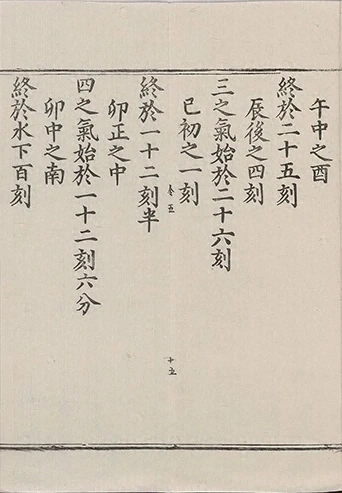 午中之酉
終於二十五刻
辰後之四刻
三之氣始於二十六刻
巳初之一刻
五
十
終於一十二刻半
卯正之中
四之氣始於一十二刻六分
卯中之南
終於水下百刻